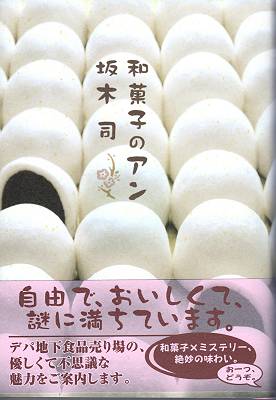 和菓子のアン
坂木 司
自由で、おいしくて、
謎に満ちています。
デパ地下食品売り場の、
優しくて不思議な
魅力をご案内します。
和菓子×ミステリー、
絶妙の味わい。
お一つ、
どうぞ。